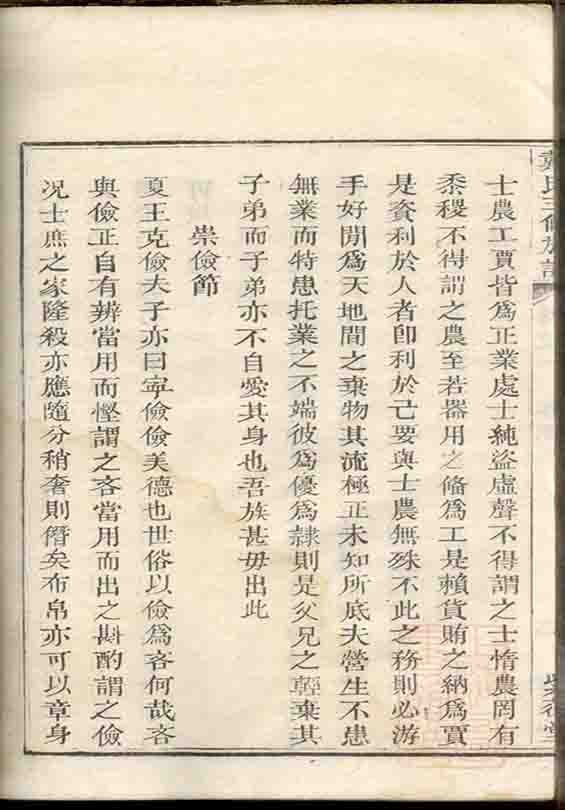 士農工賈皆爲正業處士純盜虛聲不得謂之士惰農罔有
黍稷不得謂之農至若器用之俻爲工是賴貨賄之納爲賈
是資利於人者卽利於己要與士農無殊不此之務則必游
手好閒爲天地間之棄物其流極正未知所底夫營生不患
無業而特患托業之不端彼爲優爲隷則是父兄之輕棄其
子弟而子弟亦不自愛其身也吾族甚毋出此
崇儉節
夏王克儉夫子亦曰寕儉儉美德也世俗以儉爲吝何哉吝
與儉正自有辨當用而慳謂之吝當用而出之斟酌謂之儉
况士庶之家隆殺亦應隨分稍奢則僭矣布帛亦可以章身